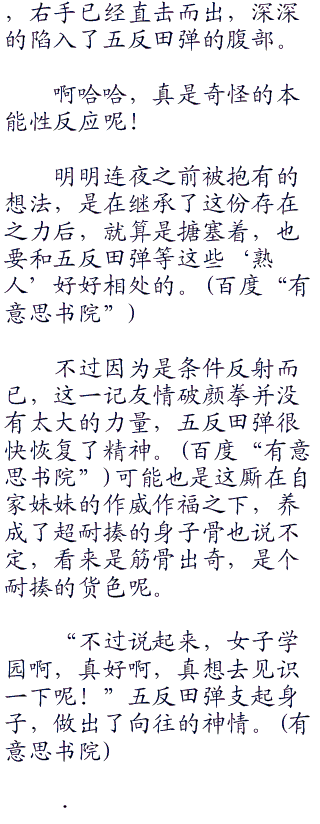 ，右手已经直击而出，深深
的陷入了五反田弹的腹部。
啊哈哈，真是奇怪的本
能性反应呢！
明明连夜之前被抱有的
想法，是在继承了这份存在
之力后，就算是搪塞着，也
要和五反田弹等这些‘熟
人’好好相处的。(百度“有
意思书院”)
不过因为是条件反射而
已，这一记友情破颜拳并没
有太大的力量，五反田弹很
快恢复了精神。(百度“有意
思书院”)可能也是这厮在自
家妹妹的作威作福之下，养
成了超耐揍的身子骨也说不
定，看来是筋骨出奇，是个
耐揍的货色呢。
“不过说起来，女子学
园啊，真好啊，真想去见识
一下呢！”五反田弹支起身
子，做出了向往的神情。(有
意思书院)
.